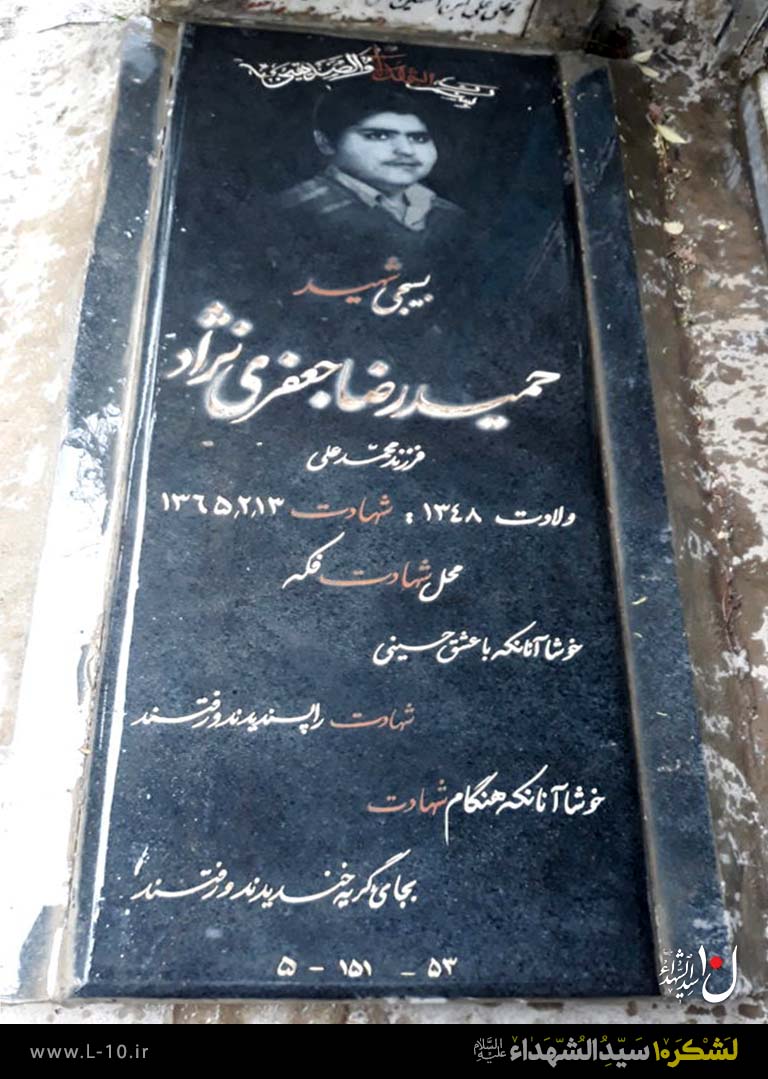 بسم رب الشهداء و الصدیقین
بسیجی شهید
حمیدرضا جعفری نژاد
فرزند محمد علی
ولادت ۱۳۴۸ : شهادت ۱۳٫۲٫۱۳۶۵
محل شهادت فکه
خوشا آنانکه با عشق حسینی
شهادت را پسندیدند و رفتند
خوشا آنانکه هنگام شهادت
بجای گریه خندیدند و رفتند
۵۳ - ۱۵۱ - ۵
ل۱۰ سیدالشهداء
www.L-10.ir
لَشکَر۱۰ سَیِّدُالشُّهَداء عَلَیهِ السَّلام